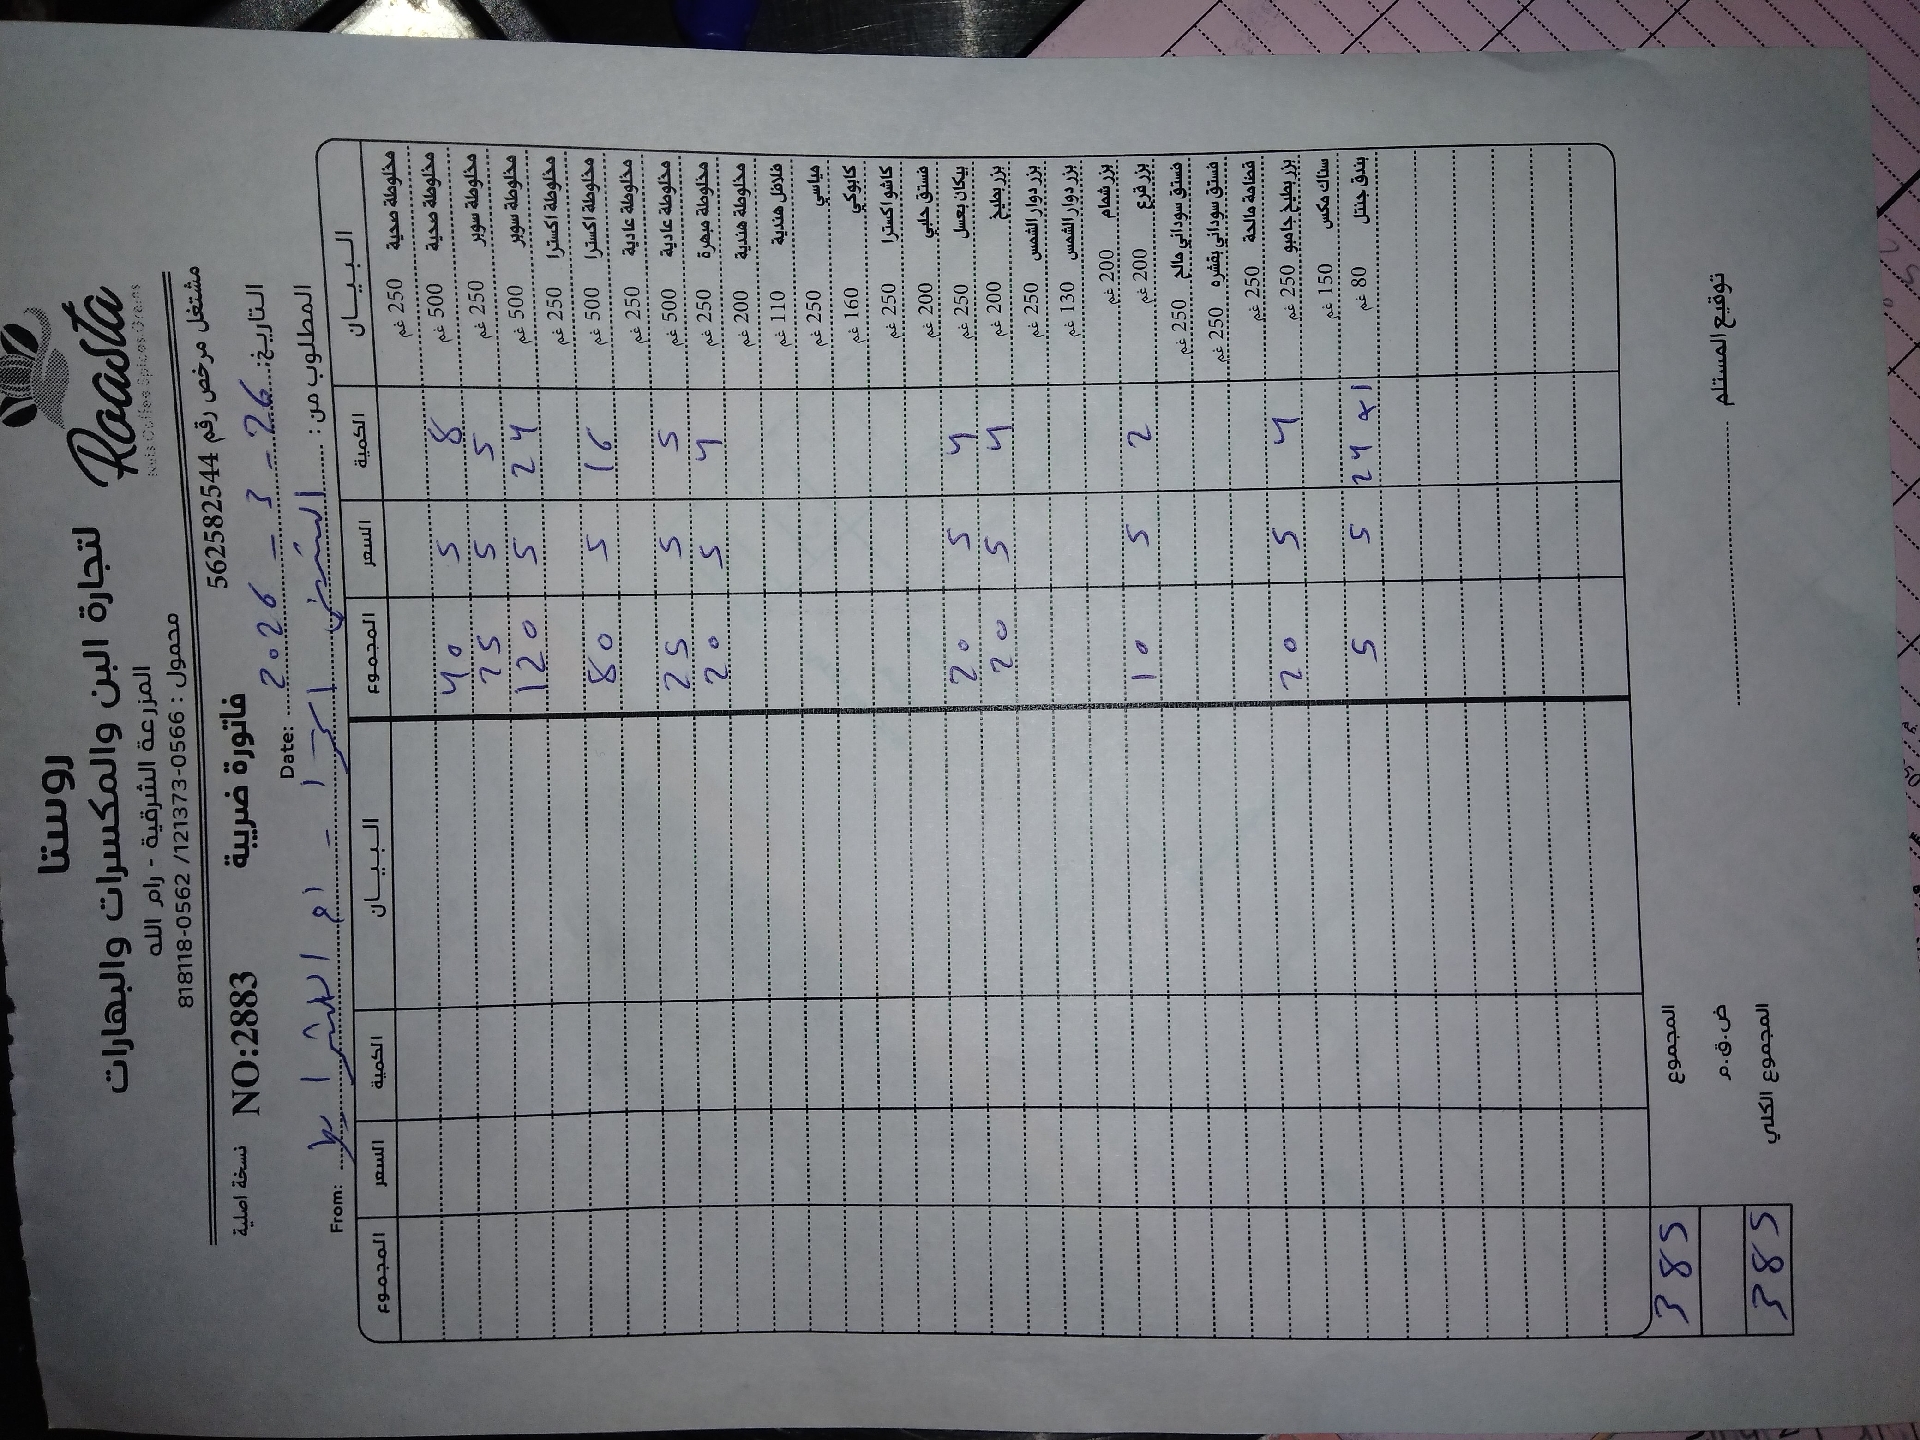 روستا
لتجارة البن والمكسرات والبهارات
Roasta
Nuts.Coffee.Spices.Grains
المزرعة الشرقية - رام الله
محمول : 0566-121373/ 0562-818118
مشتغل مرخص رقم 562582544
نسخة اصلية NO:2883 فاتورة ضريبية
التاريخ: 26 - 3 - 2026 Date:
المطلوب من: From:
البيان الكمية السعر المجموع البيان الكمية السعر المجموع
مخلوطة صحية 250 غم
مخلوطة صحية 500 غم 8 5 40
مخلوطة سوبر 250 غم 5 5 25
مخلوطة سوبر 500 غم 24 5 120
مخلوطة اكسترا 250 غم
مخلوطة اكسترا 500 غم 16 5 80
مخلوطة عادية 250 غم
مخلوطة عادية 500 غم 5 5 25
مخلوطة مبهرة 250 غم 4 5 20
مخلوطة هندية 200 غم
فلافل هندية 110 غم
مياسي 250 غم
كابوكي 160 غم
كاشو اكسترا 250 غم
فستق حلبي 200 غم
بيكان بعسل 250 غم 4 5 20
بزر بطيخ 200 غم 4 5 20
بزر دوار الشمس 250 غم
بزر دوار الشمس 130 غم
بزر شمام 200 غم
بزر قرع 200 غم 2 5 10
فستق سوداني مالح 250 غم
فستق سوداني بقشره 250 غم
قضامة مالحة 250 غم
بزر بطيخ جامبو 250 غم 4 5 20
سناك مكس 150 غم
بندق جنتل 80 غم 24 x 1 5 5
المجموع 385
ض.ق.م
المجموع الكلي 385
توقيع المستلم